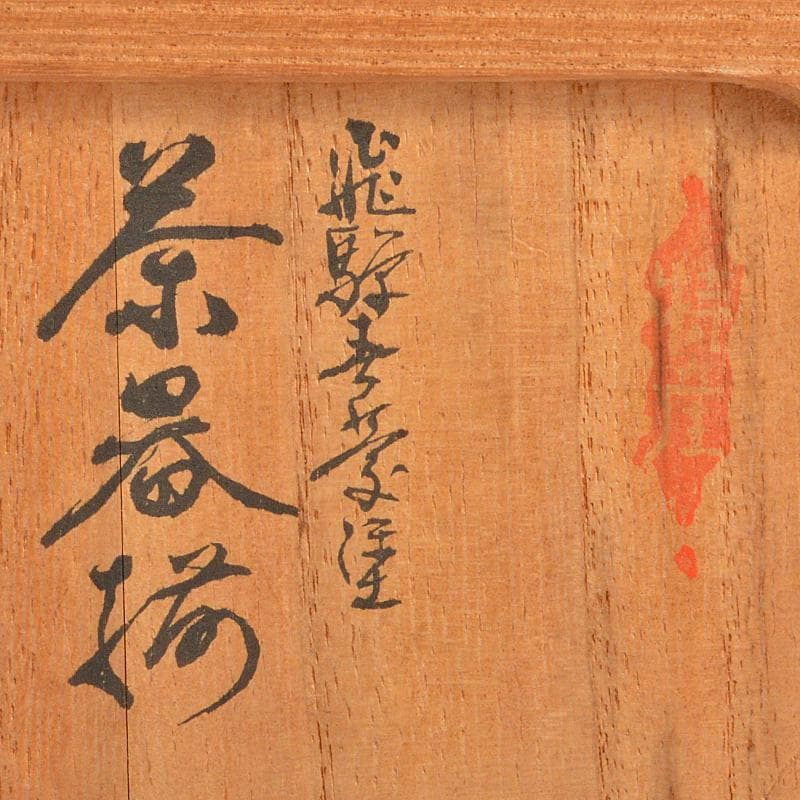 飛騨春慶塗
茶器揃